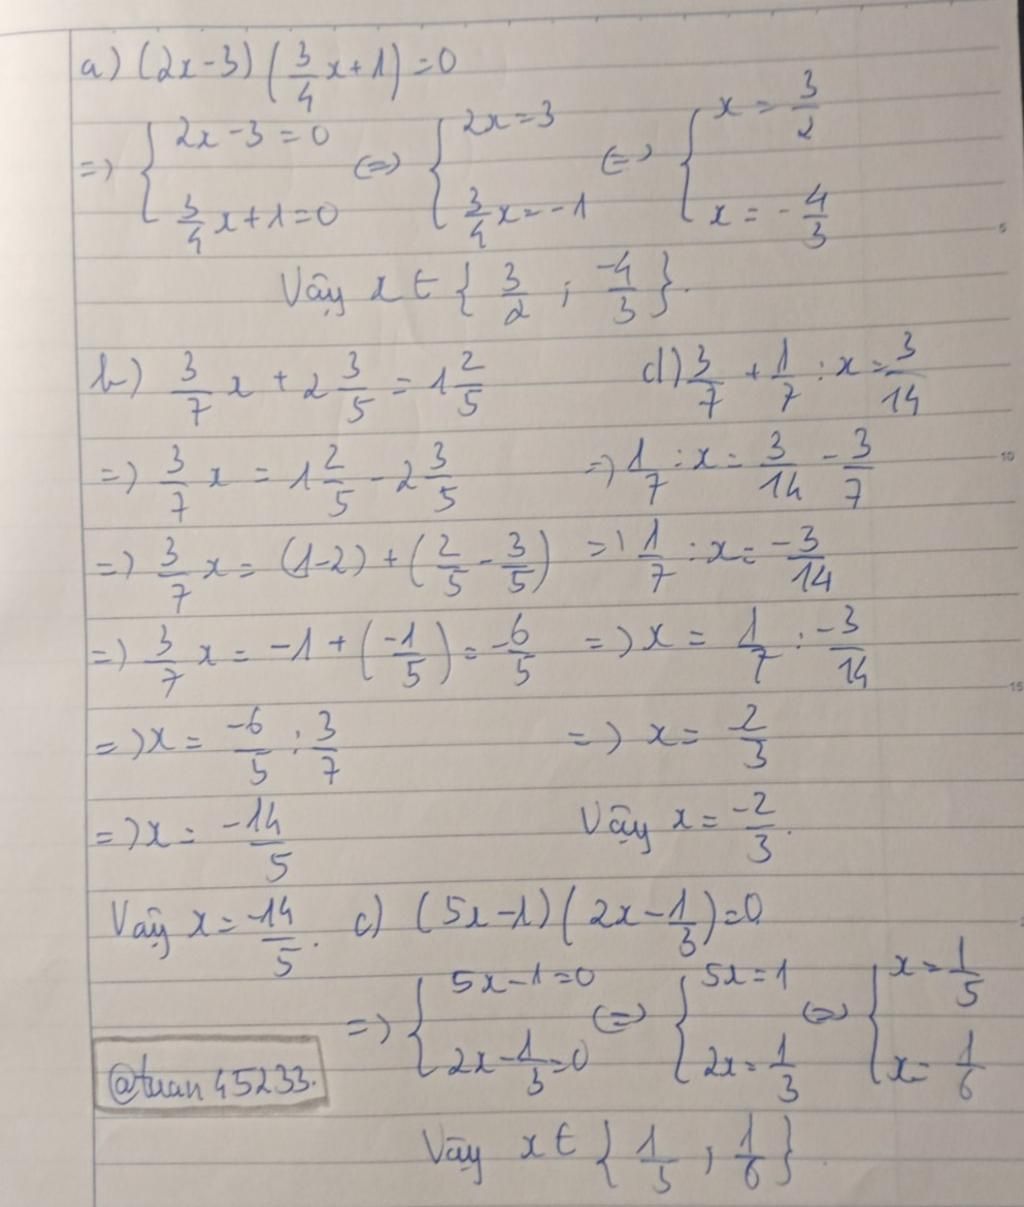 a) (2x-3)(3/4 x+1)=0
=> { 2x-3=0 ; 3/4 x+1=0 <=> { 2x=3 ; 3/4 x=-1 <=> { x=3/2 ; x=-4/3
Vậy x ∈ { 3/2 ; -4/3 }.
b) 3/7 x + 2 3/5 = 1 2/5
=> 3/7 x = 1 2/5 - 2 3/5
=> 3/7 x = (1-2) + (2/5 - 3/5)
=> 3/7 x = -1 + (-1/5) = -6/5
=> x = -6/5 : 3/7
=> x = -14/5
Vậy x = -14/5.
d) 3/7 + 1/7 : x = 3/14
=> 1/7 : x = 3/14 - 3/7
=> 1/7 : x = -3/14
=> x = 1/7 : -3/14
=> x = 2/3
Vậy x = -2/3.
c) (5x-1)(2x-1/3)=0
=> { 5x-1=0 ; 2x-1/3=0 <=> { 5x=1 ; 2x=1/3 <=> { x=1/5 ; x=1/6
Vậy x ∈ { 1/5 ; 1/6 }
@tuan45233.
5
10
15